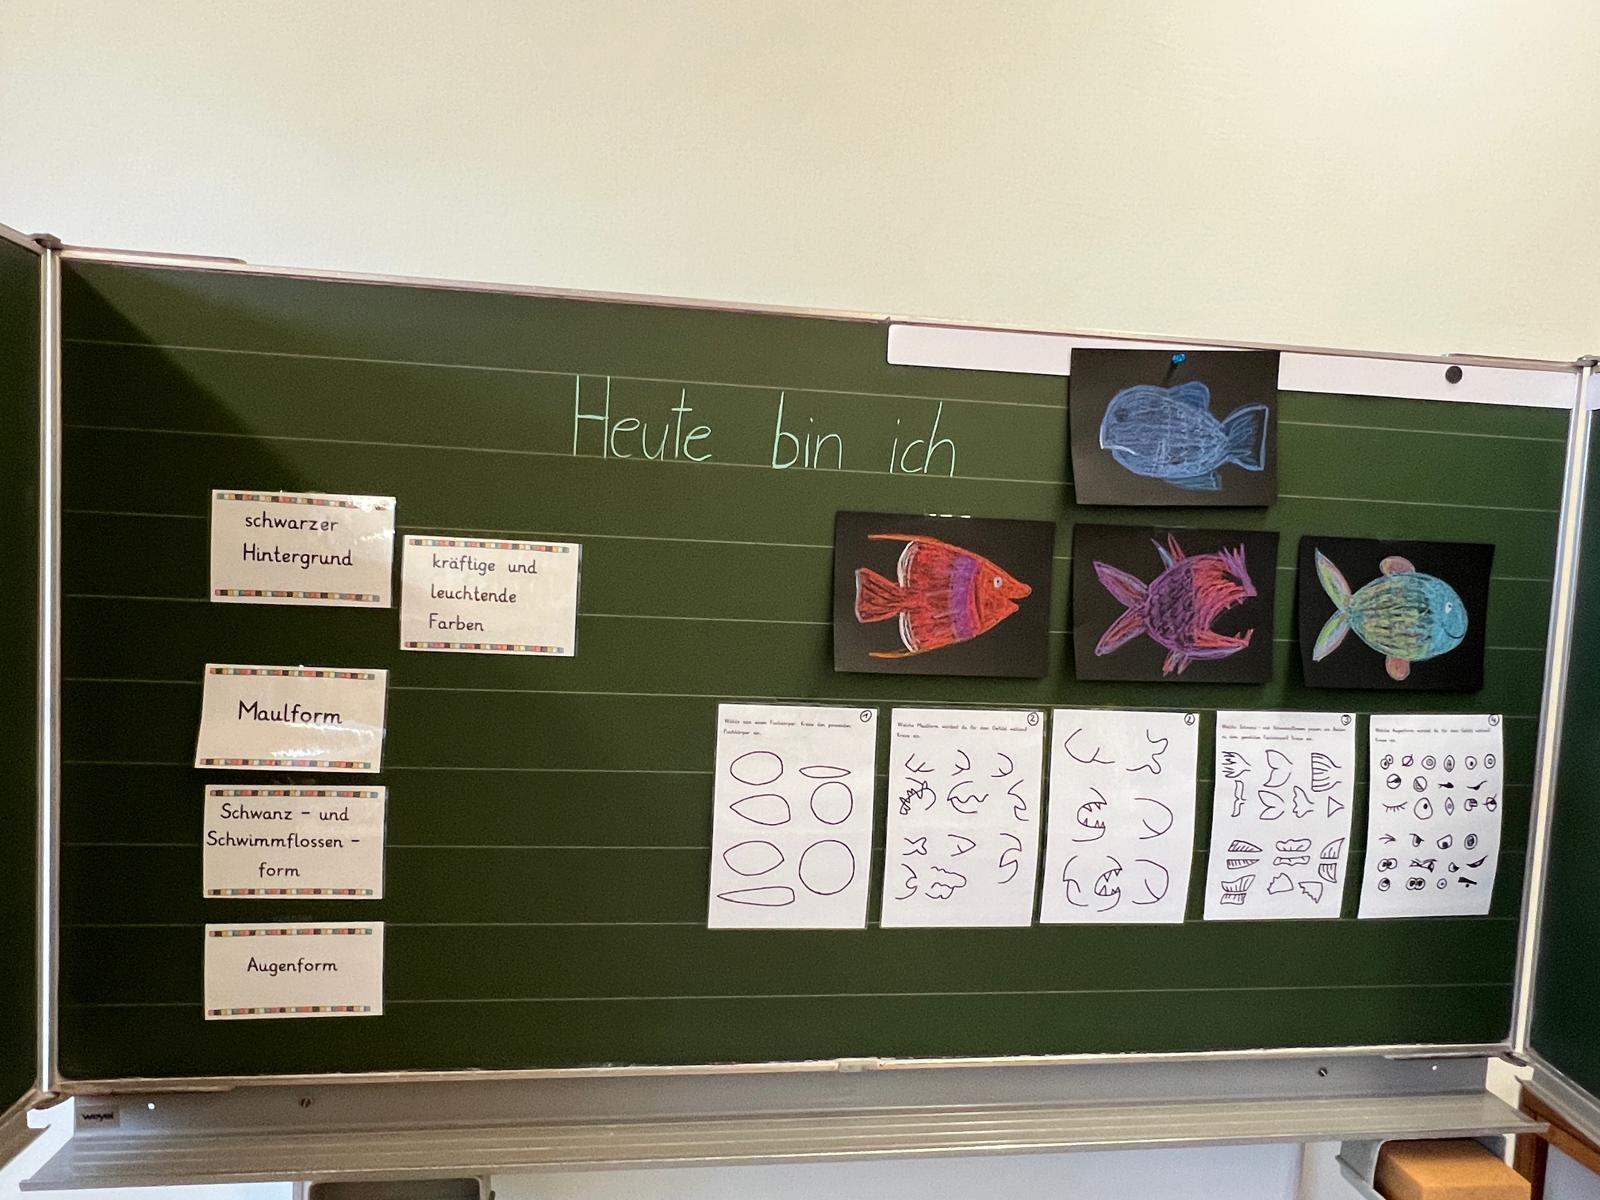 Heute bin ich
schwarzer
Hintergrund
kräftige und
leuchtende
Farben
Maulform
Schwanz - und
Schwimmflossen -
form
Augenform
1
Wähle nun einen Fischkörper. Kreise den passenden
Fischkörper ein.
2
Welche Maulform würdest du für dein Gefühl wählen?
Kreise ein.
2
3
Welche Schwanz - und Schwimmflossen passen am Besten
zu dem gewählten Fischkörper? Kreise ein.
4
Welche Augenform würdest du für dein Gefühl wählen?
Kreise ein.
weyel